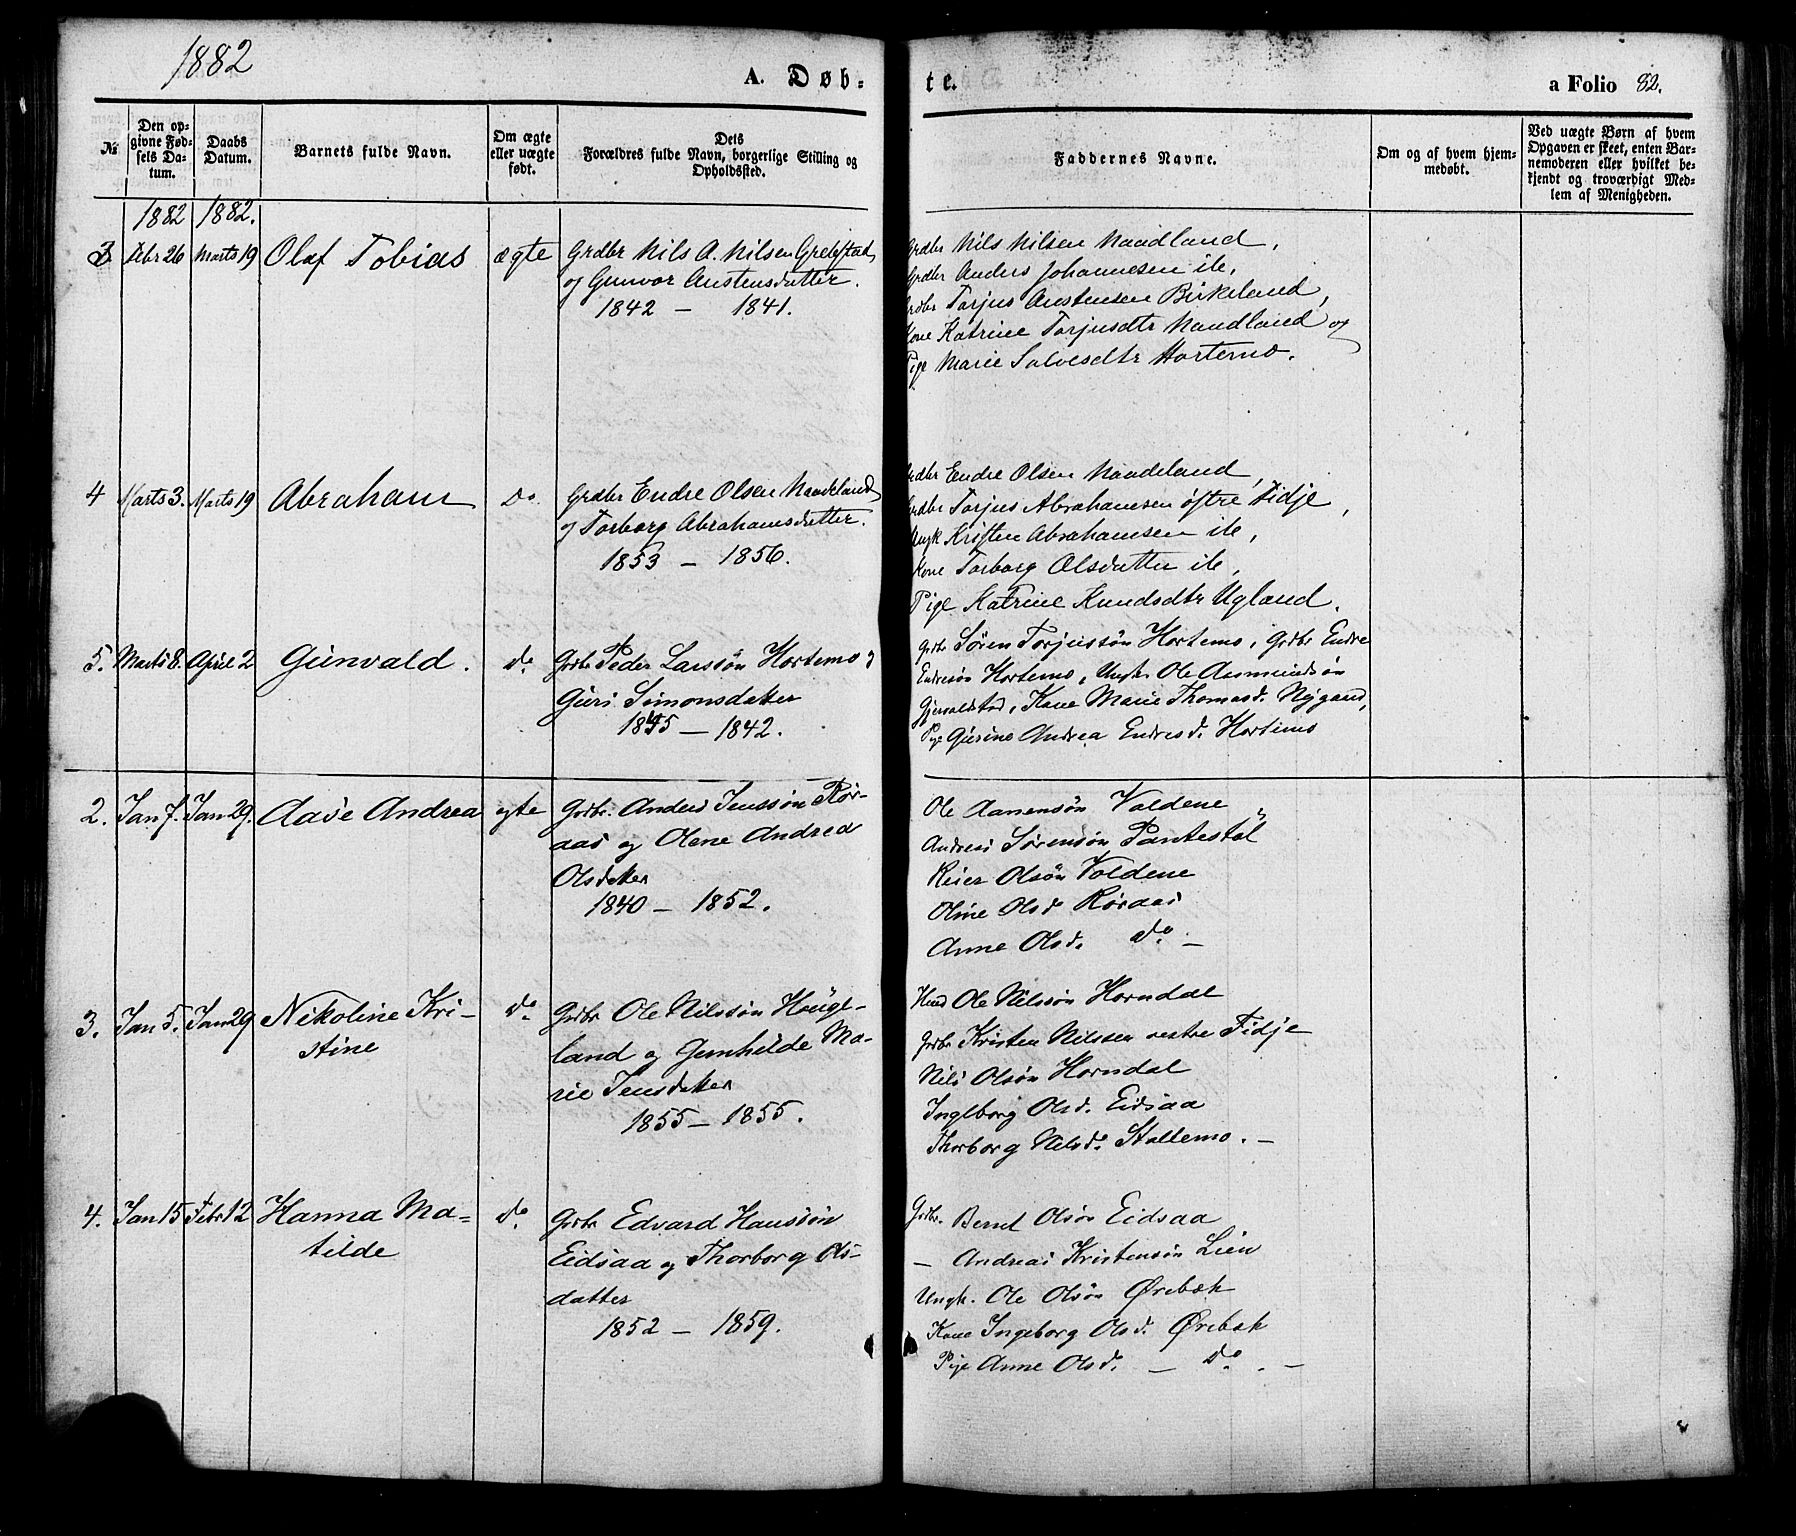 1882
A. Døb-
te.
a Folio 82.
№
Den op-
givne Fød-
sels Da-
tum.
Daabs
Datum.
Barnets fulde Navn.
Om ægte
eller uægte
født.
Dets
Forældres fulde Navn, borgerlige Stilling og
Opholdssted.
Faddernes Navne.
Om og af hvem hjem-
medøbt.
Ved uægte Børn af hvem
Opgaven er skeet, enten Bar-
nemoderen eller hvilket be-
kjendt og troværdigt Med-
lem af Menigheden.
1882 1882.
3 Febr 26 Marts 19 Olaf Tobias ægte Grdbr Nils A. Nilsen
og Gunvor Austensdatter.
1842 — 1841.
Grdbr Nils Nilsen Naadland,
Grdbr Anders Johannesen ib,
Grdbr Torjus Austensen Birkeland,
Kone Katrine Torjusdtr Naadland og
Pige Marie Salvesdtr Hortemo.
4 Marts 3. Marts 19 Abraham Do. Grdbr Endre Olsen Naadeland
og Torborg Abrahamsdatter.
1853 — 1856.
Grdbr Endre Olsen Naadeland,
Grdbr Torjus Abrahamsen østre Tidje,
Ungk Kristen Abrahamsen ib,
Kone Torborg Olsdatter ib,
Pige Katrine Knudsdtr Ugland.
5. Marts 8. April 2 Gunvald. do. Grdbr Peder Larssøn Hortemo og
Guri Simonsdatter
1845 — 1842.
Grdbr Søren Torjussøn Hortemo, Grdbr Endre
Endresøn Hortemo, Ungk. Ole Aanmundsøn
Gjervoldstad, Kone Marie Thomasd. Nygaard,
Pige Gurine Andrea Endresd. Hortemo
2. Jan 7. Jan 29. Aase Andrea egte Grdbr. Anders Jenssøn Rør-
aas og Olene Andrea
Olsdatter
1840 — 1852.
Ole Aanensøn Voldene
Andreas Sørensøn Pantestøl
Reier Olsøn Voldene
Oline Olsd Røraas
Anne Olsd. do —
3. Jan 5. Jan 29 Nikoline Kri-
stine do. Grdbr Ole Nilssøn Houge-
land og Gunhilde Ma-
rie Jensdatter
1855 — 1855.
Husm Ole Nilssøn Horndal
Grdbr Kristen Nilssen vestre Tidje
Nils Olsøn Horndal
Ingeborg Olsd. Eidsaa
Thorborg Nilsd. Stallemo. —
4. Jan 15 Febr 12 Hanna Ma-
tilde do. Grdbr Edvard Hanssøn
Eidsaa og Thorborg Ols-
datter
1852 — 1859.
Grdbr. Bernt Olsøn Eidsaa
— Andreas Kristensøn Lien
Ungk. Ole Olsøn Ørebæk
Kone Ingeborg Olsd. Ørebæk
Pige Anne Olsd. — do. —